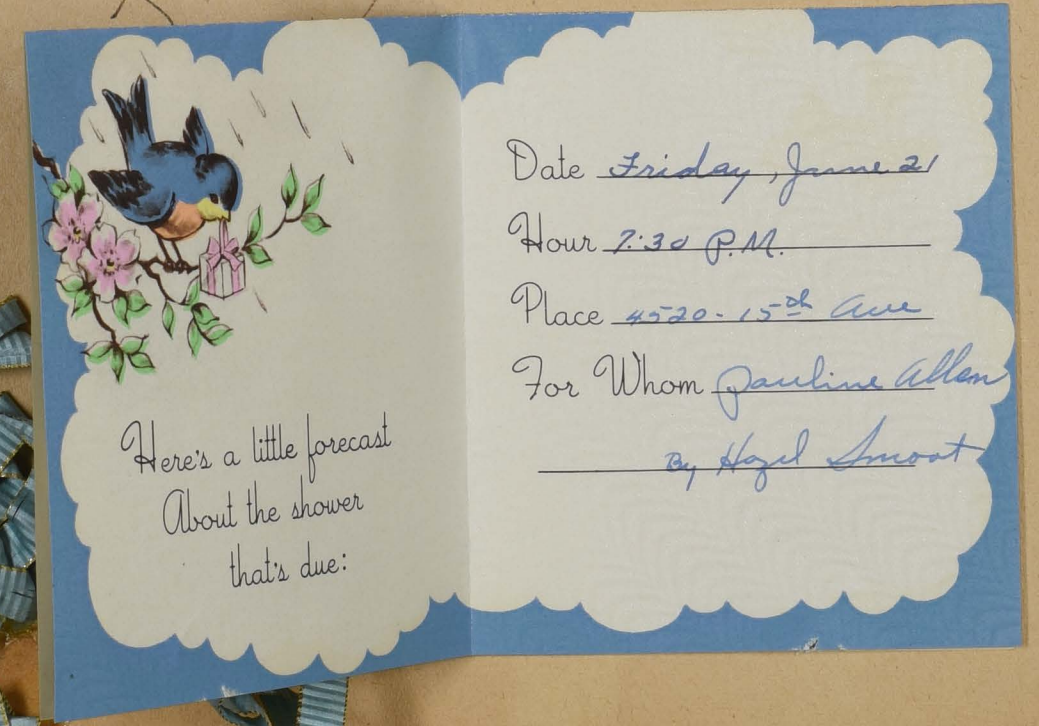 Here's a little forecast
About the shower
that's due:
Date Friday, June 21
Hour 7:30 P.M.
Place 4520 - 15th Ave
For Whom Pauline Allen
By Hazel Smoot